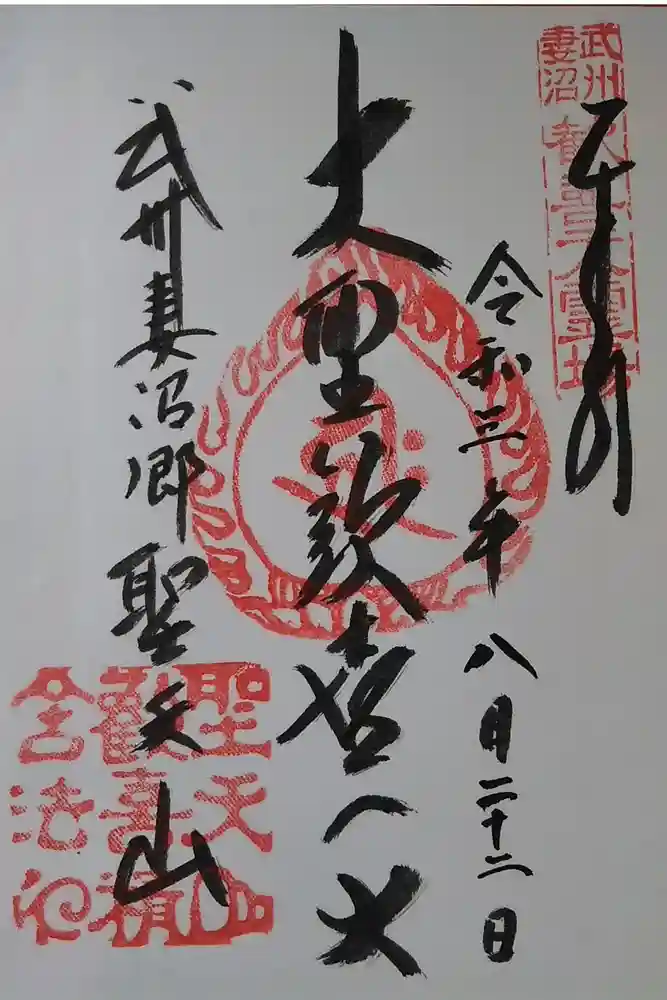 武州
妻沼
奉拝
令和三年八月二十二日
大聖歓喜天
武州妻沼郷聖天山
聖天山
歡喜精
舍法印